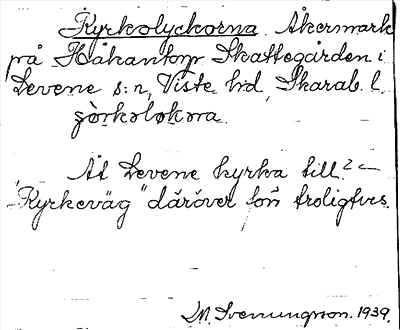 Kyrkolyckorna. Åkermark
på Håkantorp Skattegården i
Levene s:n, Viste hd, Skarab. l.
şörkoləkora.
Åt Levene kyrka till? –
"Kyrkeväg" däröver förr troligtvis.
M. Svenungsson. 1939.